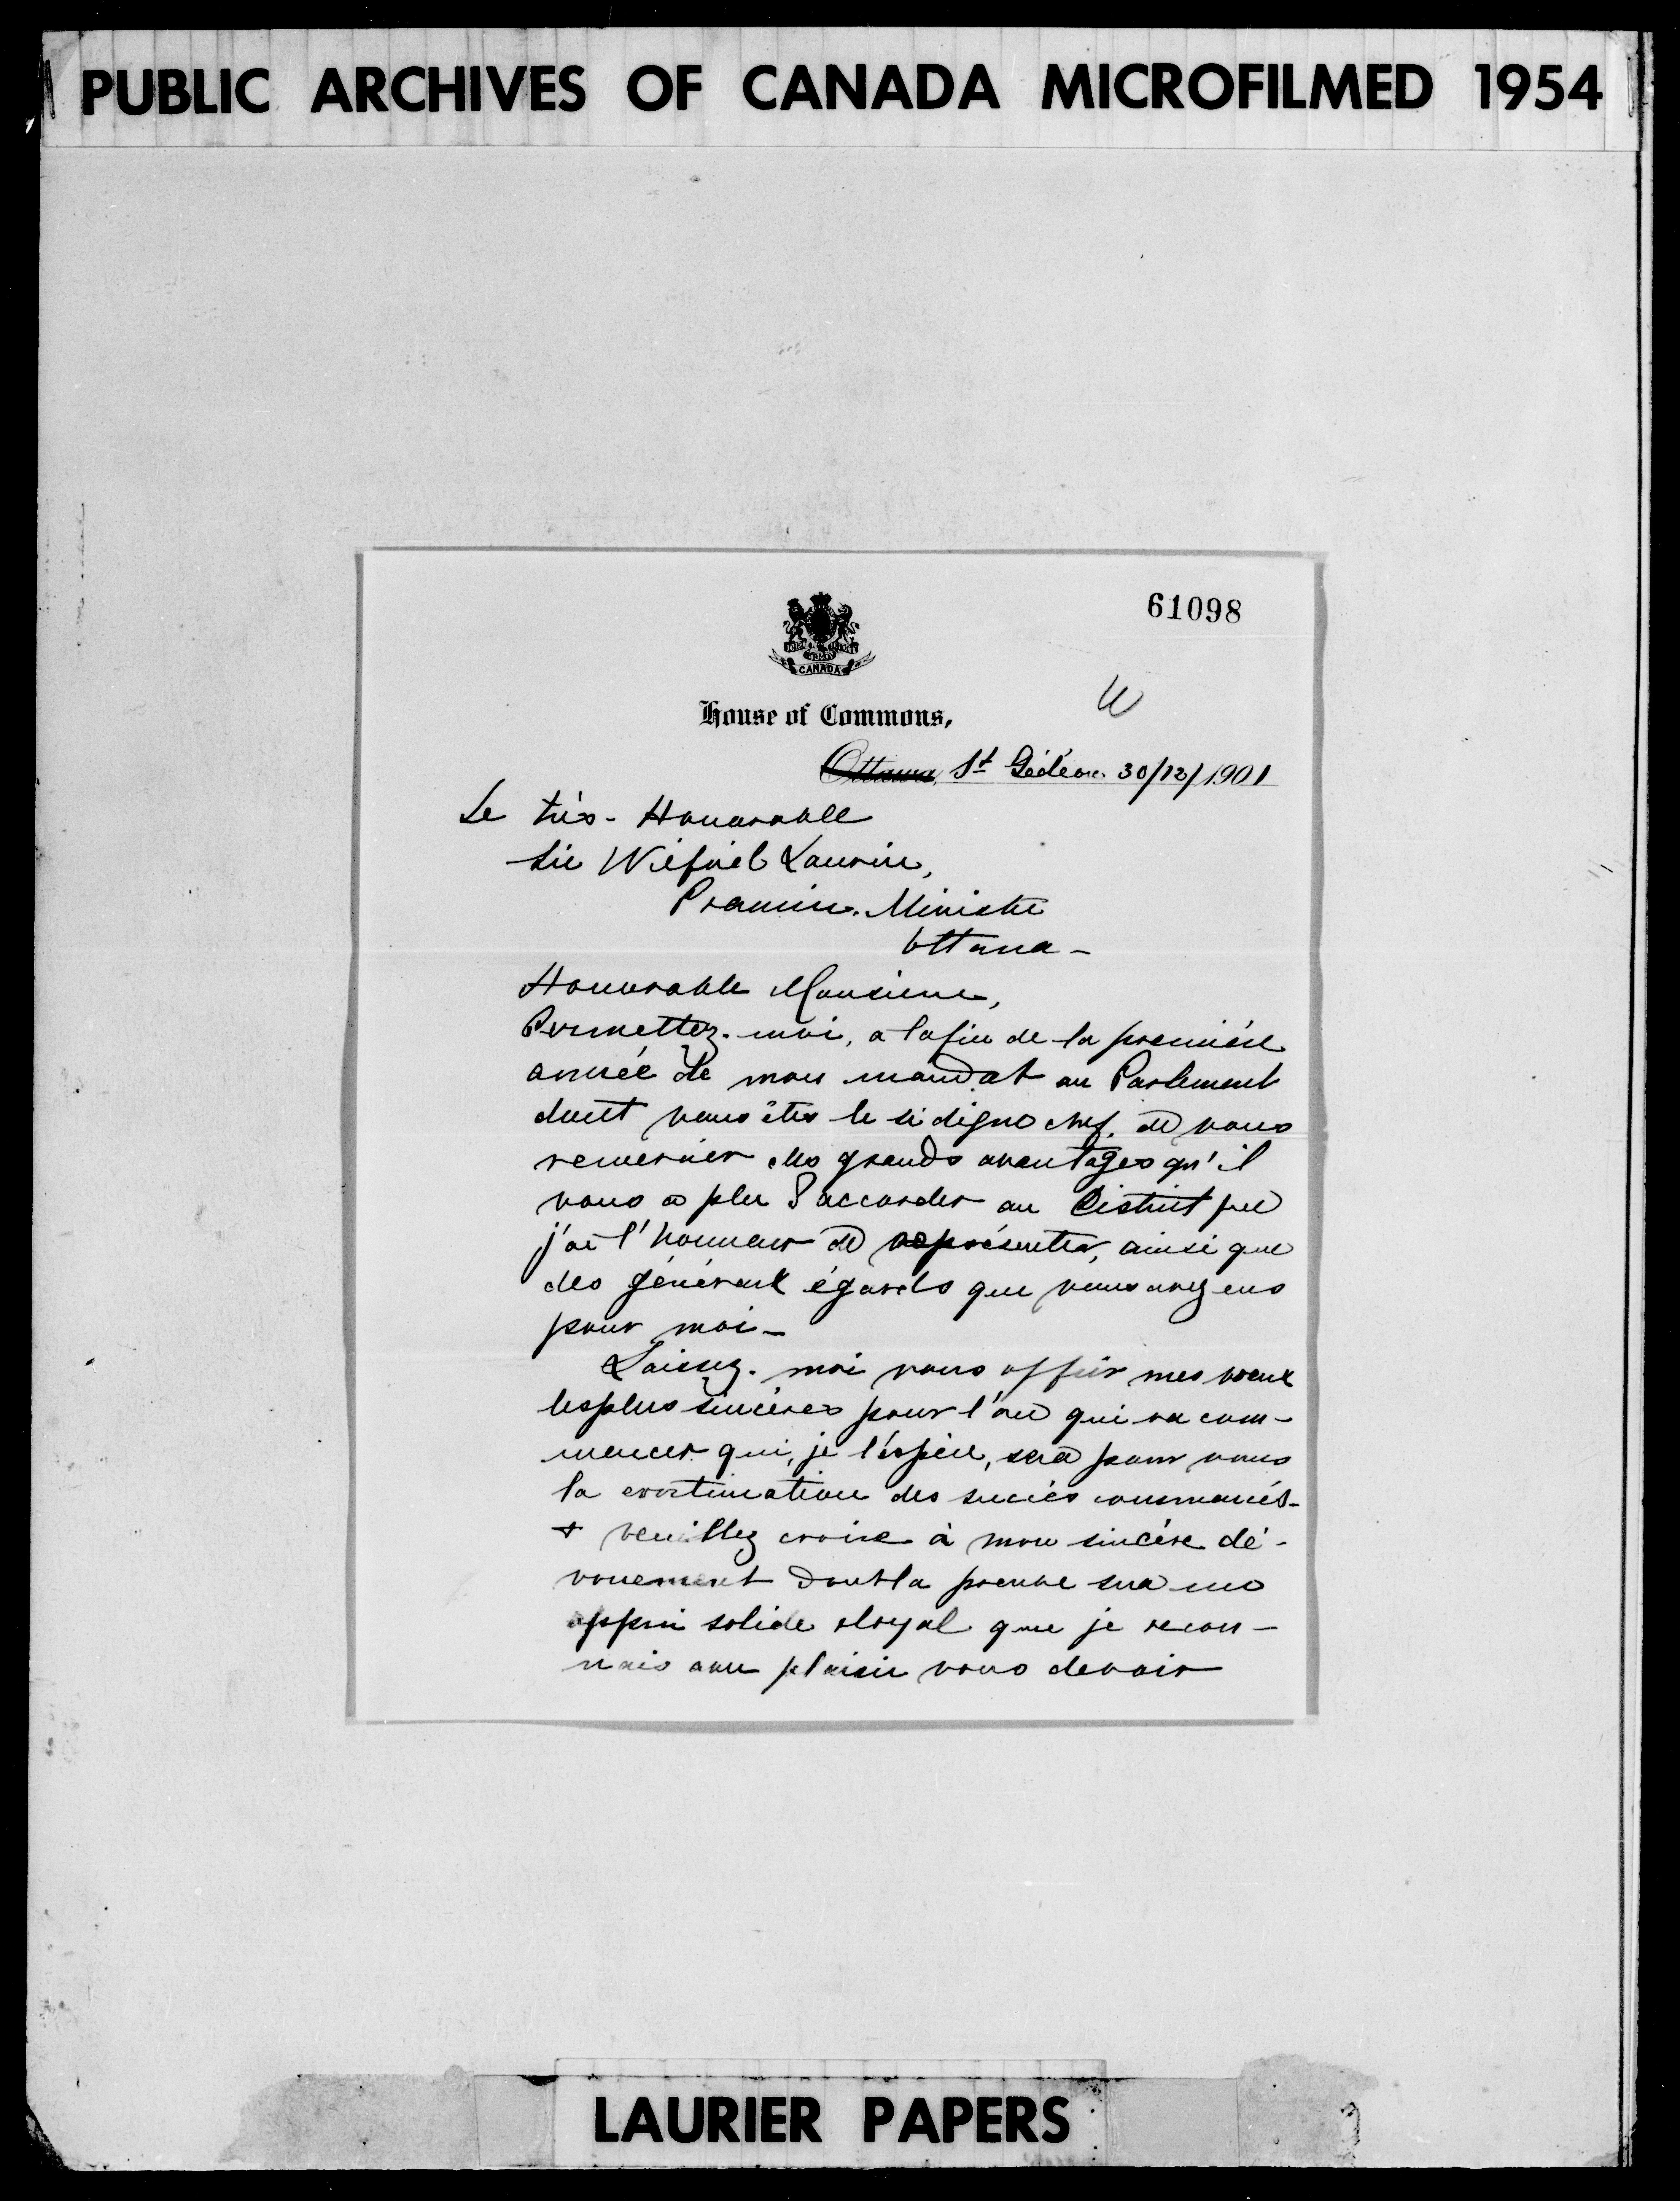 PUBLIC ARCHIVES OF CANADA MICROFILMED 1954
61098
CANADA
House of Commons,
Ottawa, St Gédéon. 30/12/1901
Le très-Honorable
Sir Wilfrid Laurier,
Premier-Ministre
Ottawa-
Honorable Monsieur,
Permettez-moi, a la fin de la première
année de mon mandat au Parlement
dont vous êtes le si digne chef, de vous
remercier des grands avantages qu'il
vous a plu d'accorder au District que
j'ai l'honneur de représenter, ainsi que
des généreux égards que vous avez eus
pour moi-
Laissez-moi vous offrir mes voeux
les plus sincères pour l'an qui va com-
mencer qui, je l'espère, sera pour vous
la continuation des succès
+ veuillez croire à mon sincère dé-
vouement dont la preuve sera un
appui solide & loyal que je recon-
nais avec plaisir vous devoir
LAURIER PAPERS